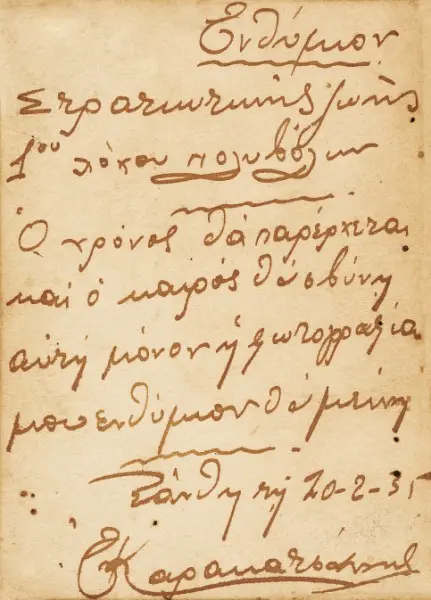 Ενθύμιον
Στρατιωτικής ζωής
1ου λόχου πολυβόλων
Ο χρόνος θά παρέρχεται
καί ο καιρός θά σβύνη
αυτή μόνον ή φωτογραφία
μου ενθύμιον θά μείνη
Ξάνθη τη 20-2-35
Καρακατσάνης